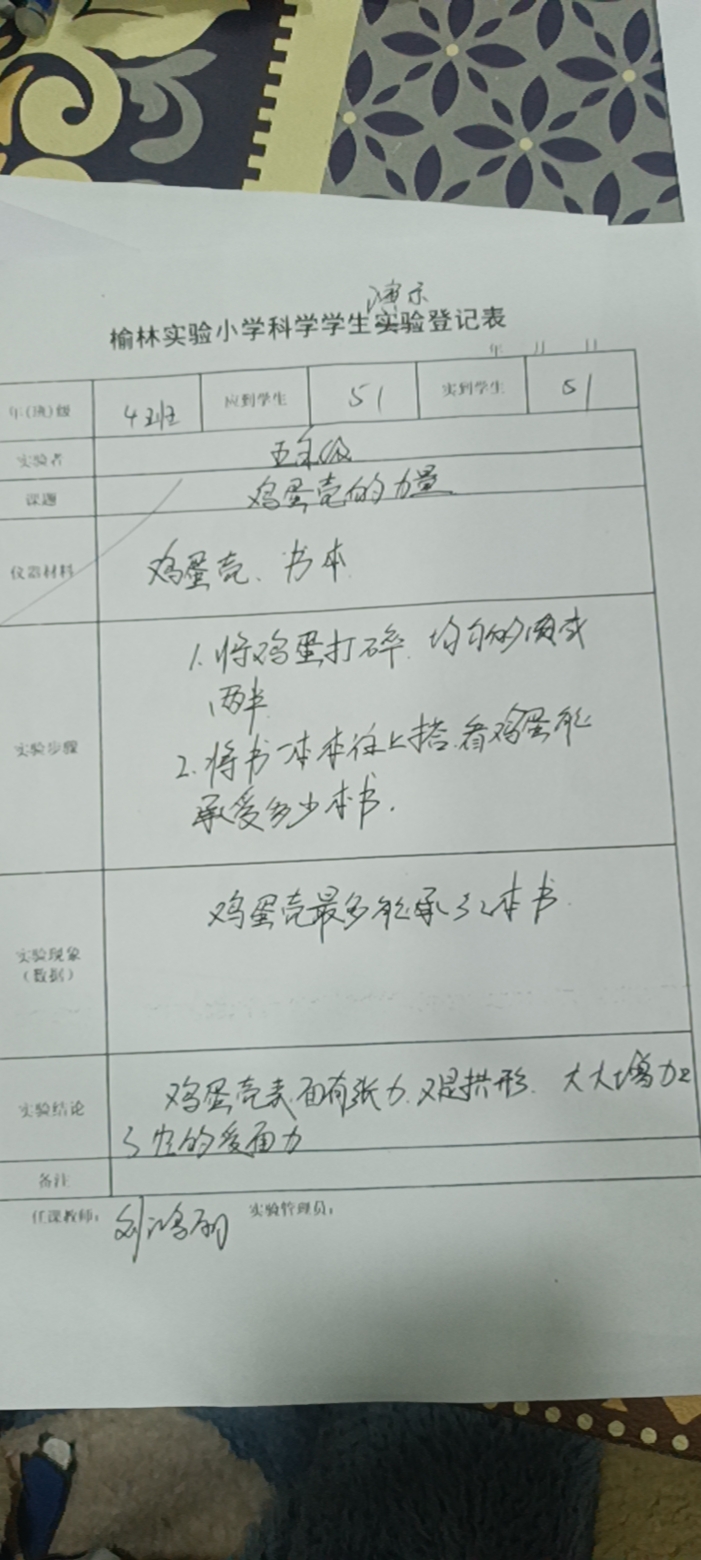 演示
榆林实验小学科学学生实验登记表
年 月 日
年(班)级 4班 应到学生 51 实到学生 51
实验者 五年级
课题 鸡蛋壳的力量
仪器材料 鸡蛋壳、书本
实验步骤 1.将鸡蛋打碎.均匀的
两半
2.将书一本本往上搭.看鸡蛋能
承受多少本书.
实验现象
(数据) 鸡蛋壳最多能承本书.
实验结论 鸡蛋壳表面有张力.又是拱形.大大增加
了它的受面力
备注
任课教师: 刘鸿 实验管理员: